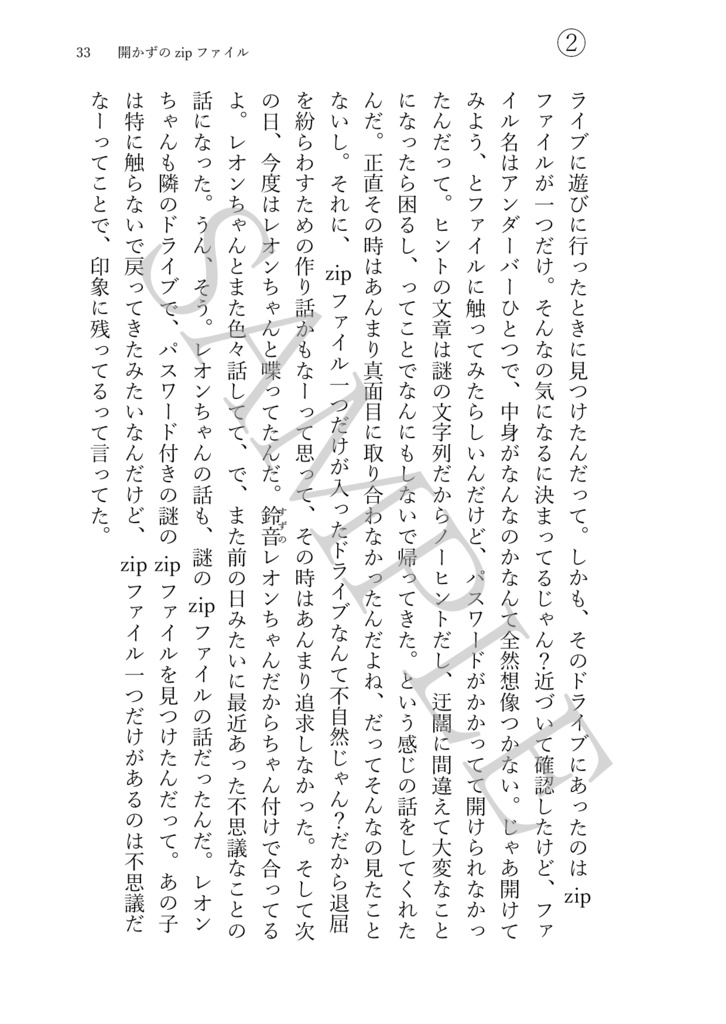 ②
33 開かずの zip ファイル
ライブに遊びに行ったときに見つけたんだって。しかも、そのドライブにあったのは zip
ファイルが一つだけ。そんなの気になるに決まってるじゃん？近づいて確認したけど、ファ
イル名はアンダーバーひとつで、中身がなんなのかなんて全然想像つかない。じゃあ開けて
みよう、とファイルに触ってみたらしいんだけど、パスワードがかかってて開けられなかっ
たんだって。ヒントの文章は謎の文字列だからノーヒントだし、迂闊に間違えて大変なこと
になったら困るし、ってことでなんにもしないで帰ってきた。という感じの話をしてくれた
んだ。正直その時はあんまり真面目に取り合わなかったんだよね、だってそんなの見たこと
ないし。それに、zip ファイル一つだけが入ったドライブなんて不自然じゃん？だから退屈
を紛らわすための作り話かもなーって思って、その時はあんまり追求しなかった。そして次
の日、今度はレオンちゃんと喋ってたんだ。鈴音すずのレオンちゃんだからちゃん付けで合ってる
よ。レオンちゃんとまた色々話してて、で、また前の日みたいに最近あった不思議なことの
話になった。うん、そう。レオンちゃんの話も、謎の zip ファイルの話だったんだ。レオン
ちゃんも隣のドライブで、パスワード付きの謎の zip ファイルを見つけたんだって。あの子
は特に触らないで戻ってきたみたいなんだけど、zip ファイル一つだけがあるのは不思議だ
なーってことで、印象に残ってるって言ってた。
SAMPLE